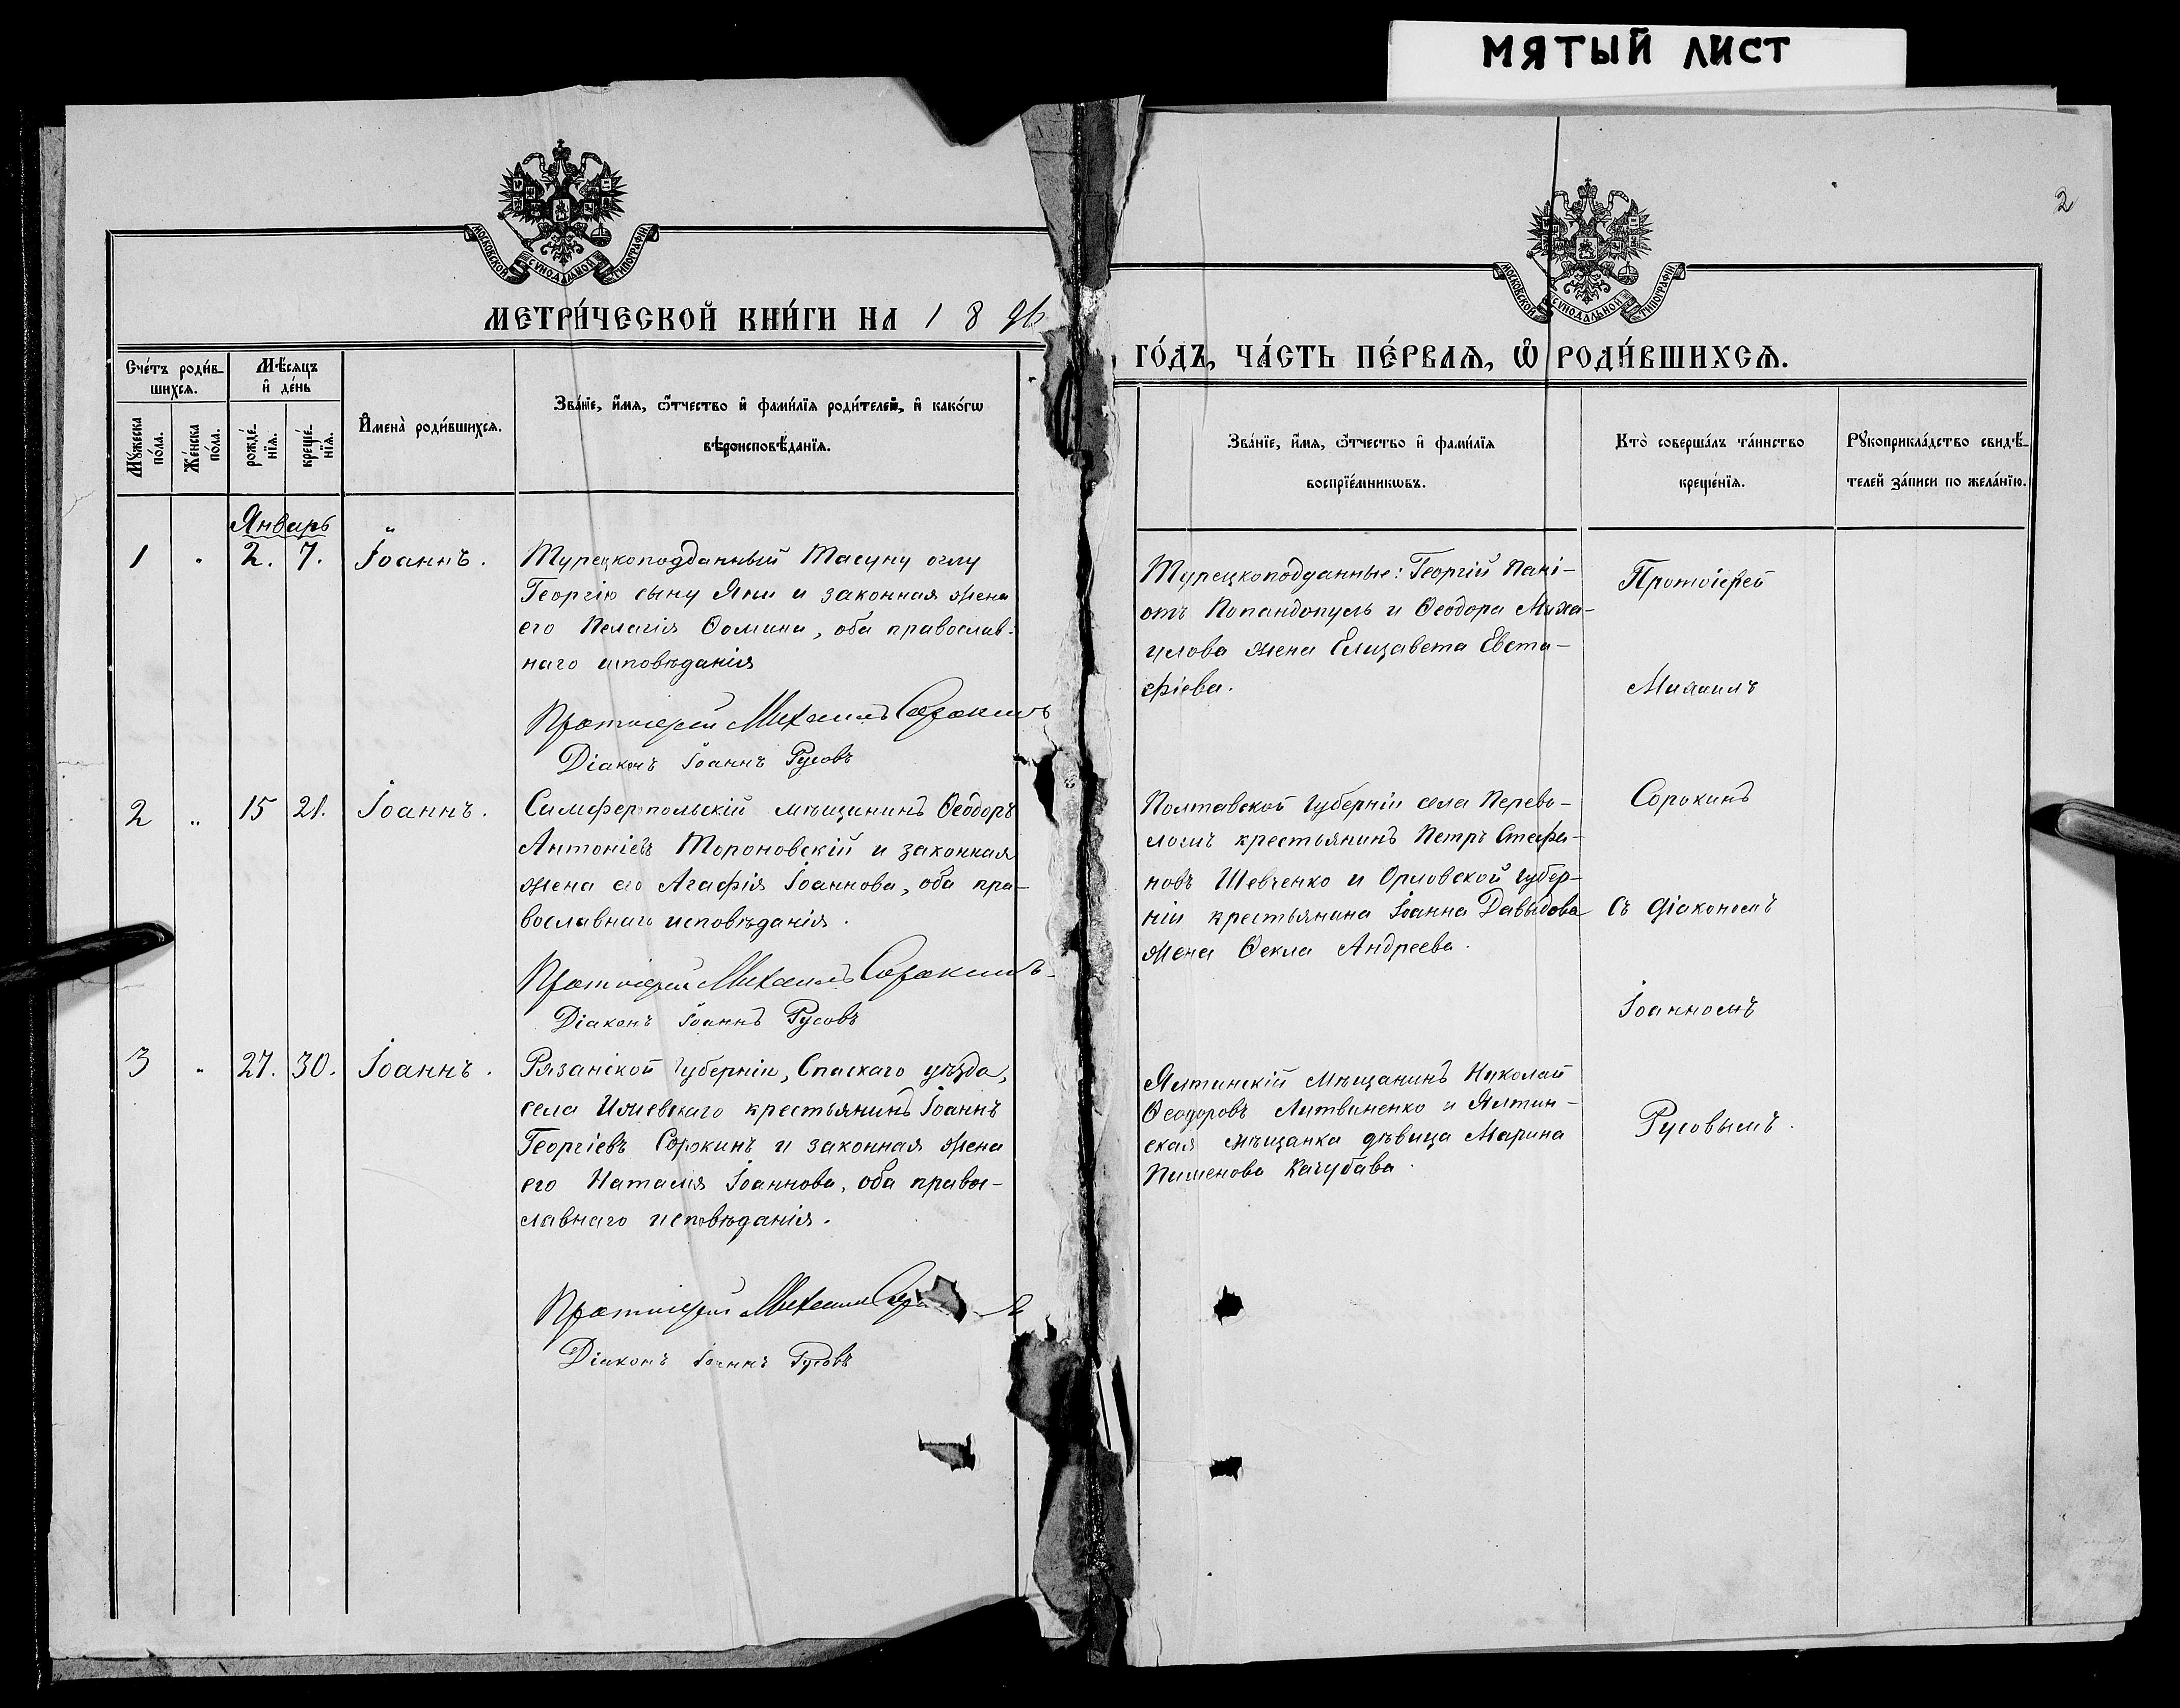 МЯТЫЙ ЛИСТ
2
МОСКОВСКОЙ СѴНОДАЛЬНОЙ ТИПОГРАФІИ
МОСКОВСКОЙ СѴНОДАЛЬНОЙ ТИПОГРАФІИ
МЕТРИ́ЧЕСКОЙ КНИ́ГИ НА 1896
ГО́ДЪ, ЧА́СТЬ ПЕ́РВАѦ, Ѡ҆ РОДИ́ВШИХСѦ.
Сче́тъ роди́в-
шихсѧ.
Мѣ́сѧцъ
и҆ де́нь
Мꙋ́жеска
по́ла.
Же́нска
по́ла.
рожде́-
нїѧ.
креще́-
нїѧ.
И҆мена̀ роди́вшихсѧ.
Зва́нїе, и҆́мѧ, ѻ҆́тчество и҆ фами́лїѧ роди́телей, и҆ како́гѡ
вѣроисповѣ́данїѧ.
Зва́нїе, и҆́мѧ, ѻ҆́тчество и҆ фами́лїѧ
воспрїе́мникѡвъ.
Кто̀ соверша́лъ та́инство
креще́нїѧ.
Рꙋкоприкла́дство свидѣ́-
телей за́писи по жела́нїю.
Январь
1 " 2. 7. Іоаннъ.
Турецкоподданный Масуну оглу
Георгію сыну Яни и законная жена
его Пелагія Ѳомина, оба православ-
наго исповѣданія
Протоіерей Михаилъ Сорокинъ
Діаконъ Іоаннъ Русовъ
Турецкоподданные: Георгій Пані-
отъ Попандопулъ и Ѳеодора Миха-
илова жена Елизавета Евста-
фіева.
2 " 15 21. Іоаннъ.
Симферопольскій мѣщанинъ Ѳеодоръ
Антоніевъ Мороновскій и законная
жена его Агафія Іоаннова, оба пра-
вославнаго исповѣданія.
Протоіерей Михаилъ Сорокинъ
Діаконъ Іоаннъ Русовъ
Полтавской губерніи села Перево-
лочъ крестьянинъ Петръ Стефа-
новъ Шевченко и Орловской губер-
ніи крестьянина Іоанна Давыдова
жена Ѳекла Андреева.
3 " 27. 30. Іоаннъ.
Рязанской губерніи, Спаскаго уѣзда,
села Ижевскаго крестьянинъ Іоаннъ
Георгіевъ Сорокинъ и законная жена
его Наталія Іоаннова, оба право-
славнаго исповѣданія.
Протоіерей Михаилъ
Діаконъ Іоаннъ Русовъ
Ялтинскій мѣщанинъ Николай
Ѳеодоровъ Литвиненко и Ялтин-
ская мѣщанка дѣвица Марина
Пименова Качубава.
Протоіерей
Михаилъ
Сорокинъ
съ діакономъ
Іоанномъ
Русовымъ.